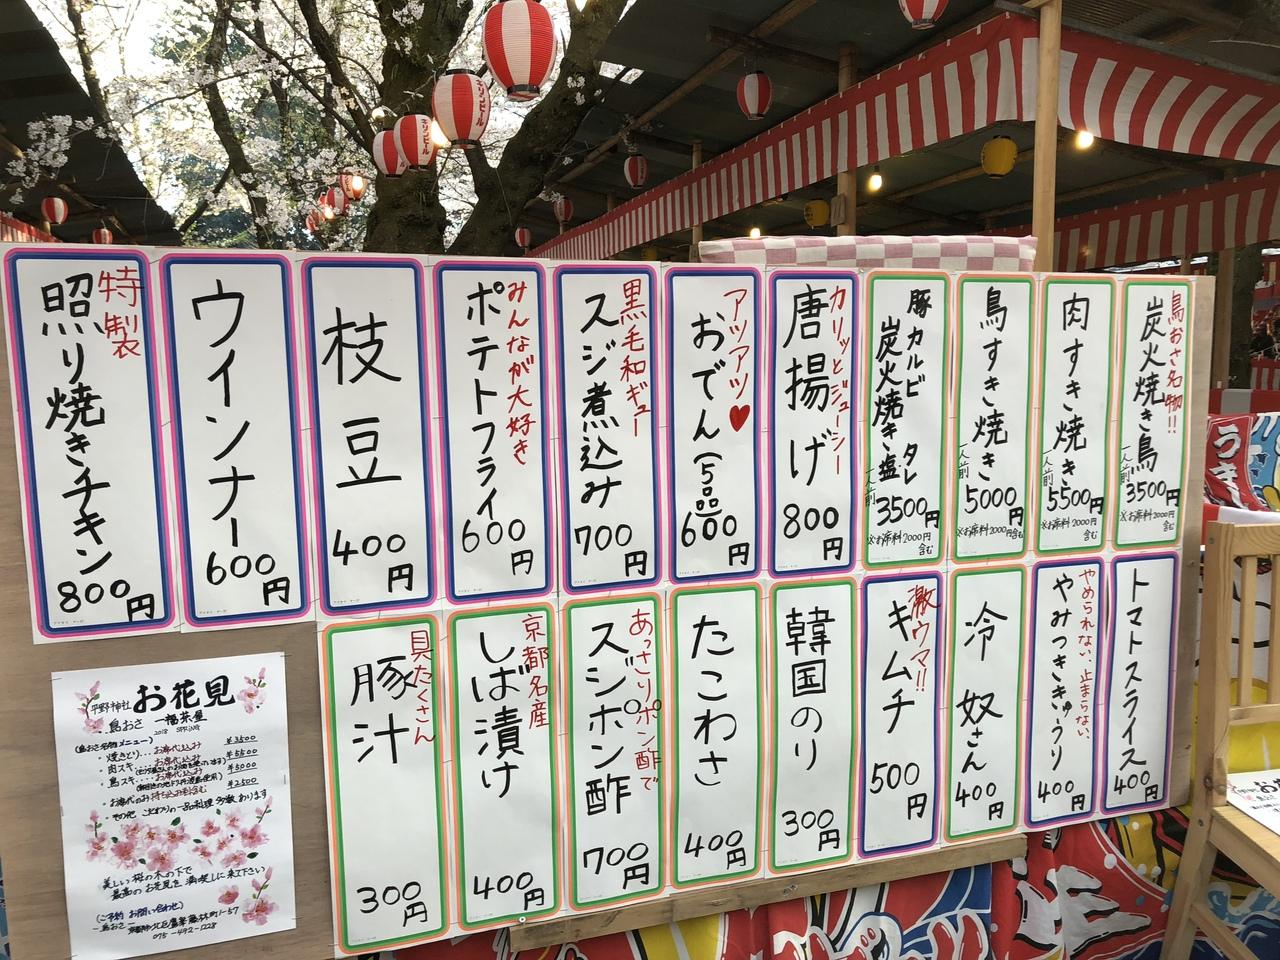 キリンビール
キリンビール
特製
照り焼きチキン
800円
ウインナー
600円
枝豆
400円
みんなが大好き
ポテトフライ
600円
黒毛和ギュー
スジ煮込み
700円
アツアツ♥
おでん(5品)
600円
カリッとジューシー
唐揚げ
800円
豚カルビ タレ
炭火焼き塩
一人前
3500円
※お席料2000円
含む
鳥すき焼き
一人前
5000円
※お席料2000円含む
肉すき焼き
一人前
5500円
※お席料2000円
含む
鳥おさ名物!!
炭火焼き鳥
一人前
3500円
※お席料2000円
含む
具たくさん
豚汁
300円
京都名産
しば漬け
400円
あっさりポン酢で
スジポン酢
700円
たこわさ
400円
韓国のり
300円
激ウマ!!
キムチ
500円
冷奴さん
400円
やめられない、止まらない、
やみつききゅうり
400円
トマトスライス
400円
平野神社 お花見
鳥おさ 一福茶屋
2018 SPRING
(鳥おさ名物メニュー)
・焼きとり...お席代込み ¥3500
・肉スキ....お席代込み ¥5500
・鳥スキ....お席代込み ¥5000
・お席代のみ 持ち込み料含む ¥2500
・その他 こだわりの一品料理 多数あります
美しい桜の木の下で
最高のお花見を満喫しに来下さい
(ご予約 お問い合わせ)
鳥おさ
075-492-1228
うき